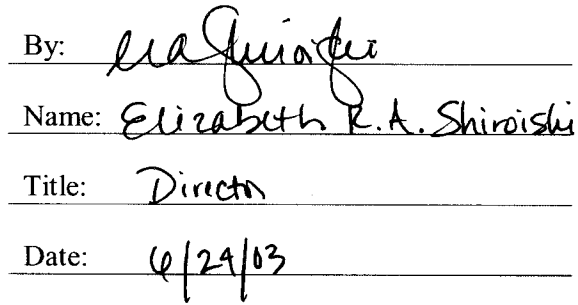 By:
Name: Elizabeth R.A. Shiroishi
Title: Director
Date: 6/24/03